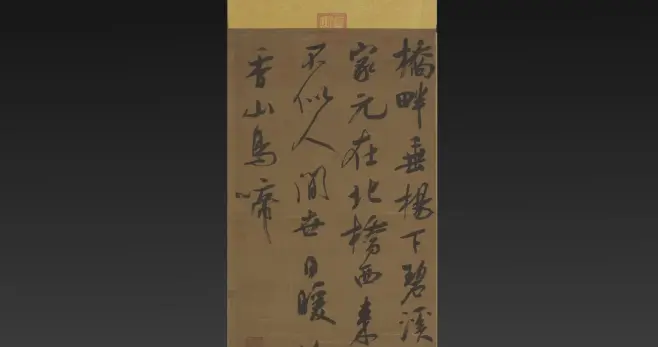 橋畔垂楊下碧溪
家元在北橋西来
不似人間世日暖
香山鳥啼